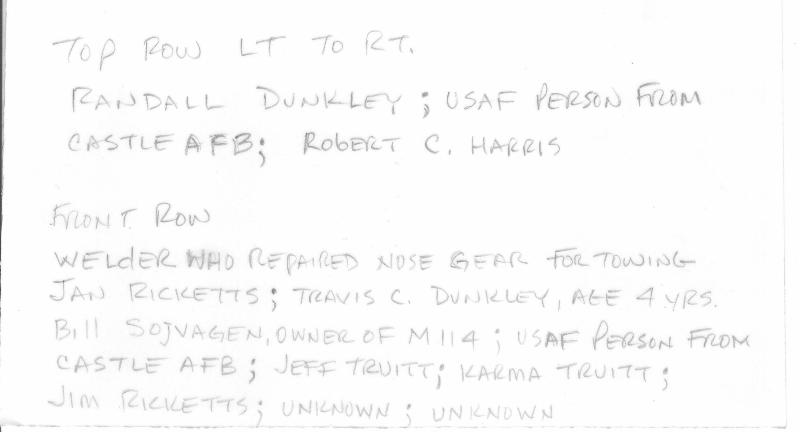 TOP ROW LT TO RT.
RANDALL DUNKLEY ; USAF PERSON FROM
CASTLE AFB; ROBERT C. HARRIS
FRONT ROW
WELDER WHO REPAIRED NOSE GEAR FOR TOWING
JAN RICKETTS ; TRAVIS C. DUNKLEY, AGE 4 YRS.
Bill SOJVAGEN, OWNER OF M114 ; USAF PERSON FROM
CASTLE AFB ; JEFF TRUITT; KARMA TRUITT ;
JIM RICKETTS ; UNKNOWN ; UNKNOWN